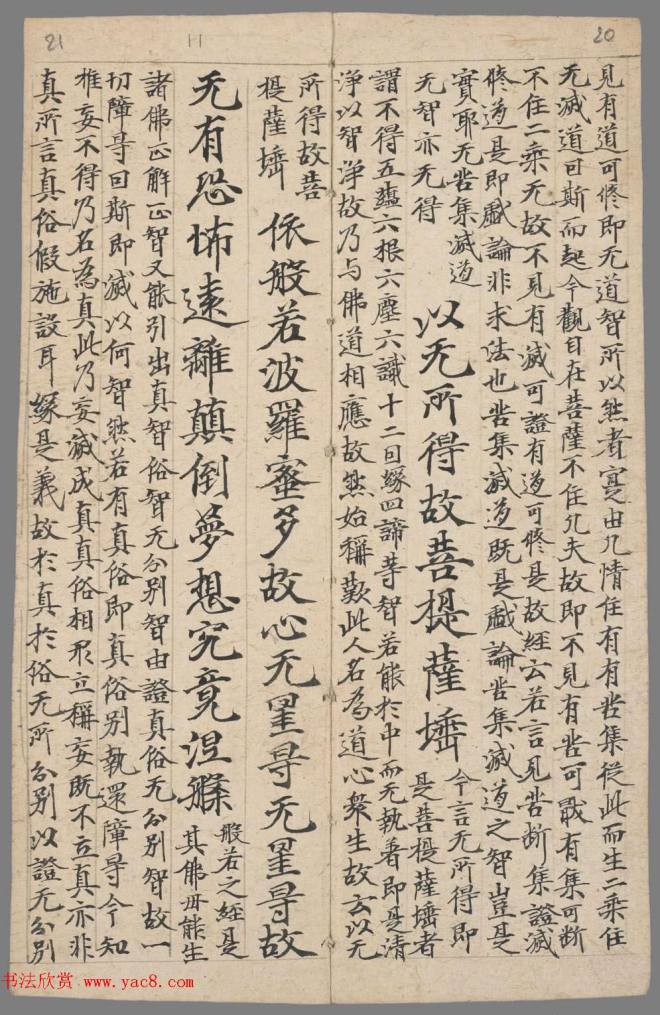 20
見有道可修即无道智所以然者寔由凡情住有有苦集從此而生二乘住
无滅道因斯而起今觀自在菩薩不住凡夫故即不見有苦可戢有集可断
不住二乘无故不見有滅可證有道可修是故經云若言見苦断集證滅
修道是即戲論非求法也苦集滅道既是戲論苦集滅道之智豈是
實耶无苦集滅道
无智亦无得
以无所得故菩提薩埵
今言无所得即
是菩提薩埵者
謂不得五蕴六根六塵六識十二因緣四諦等智若能於中而无執着即是清
淨以智淨故乃与佛道相應故然始稱歎此人名為道心衆生故云以无
21
11
所得故菩
提薩埵
依般若波羅蜜多故心无罣导无罣导故
无有恐怖遠離顛倒夢想究竟涅槃
般若之經是
其佛毋能生
諸佛正解正智又能引出真智俗智无分别智由證真俗无分别智故一
切障导因斯即滅以何智然若有真俗即真俗别執還障导今知
推妄不得乃名為真此乃妄滅成真真俗相形立稱妄既不立真亦非
真所言真俗假施設耳緣是義故於真於俗无所分别以證无分别
书法欣赏 www.yac8.com